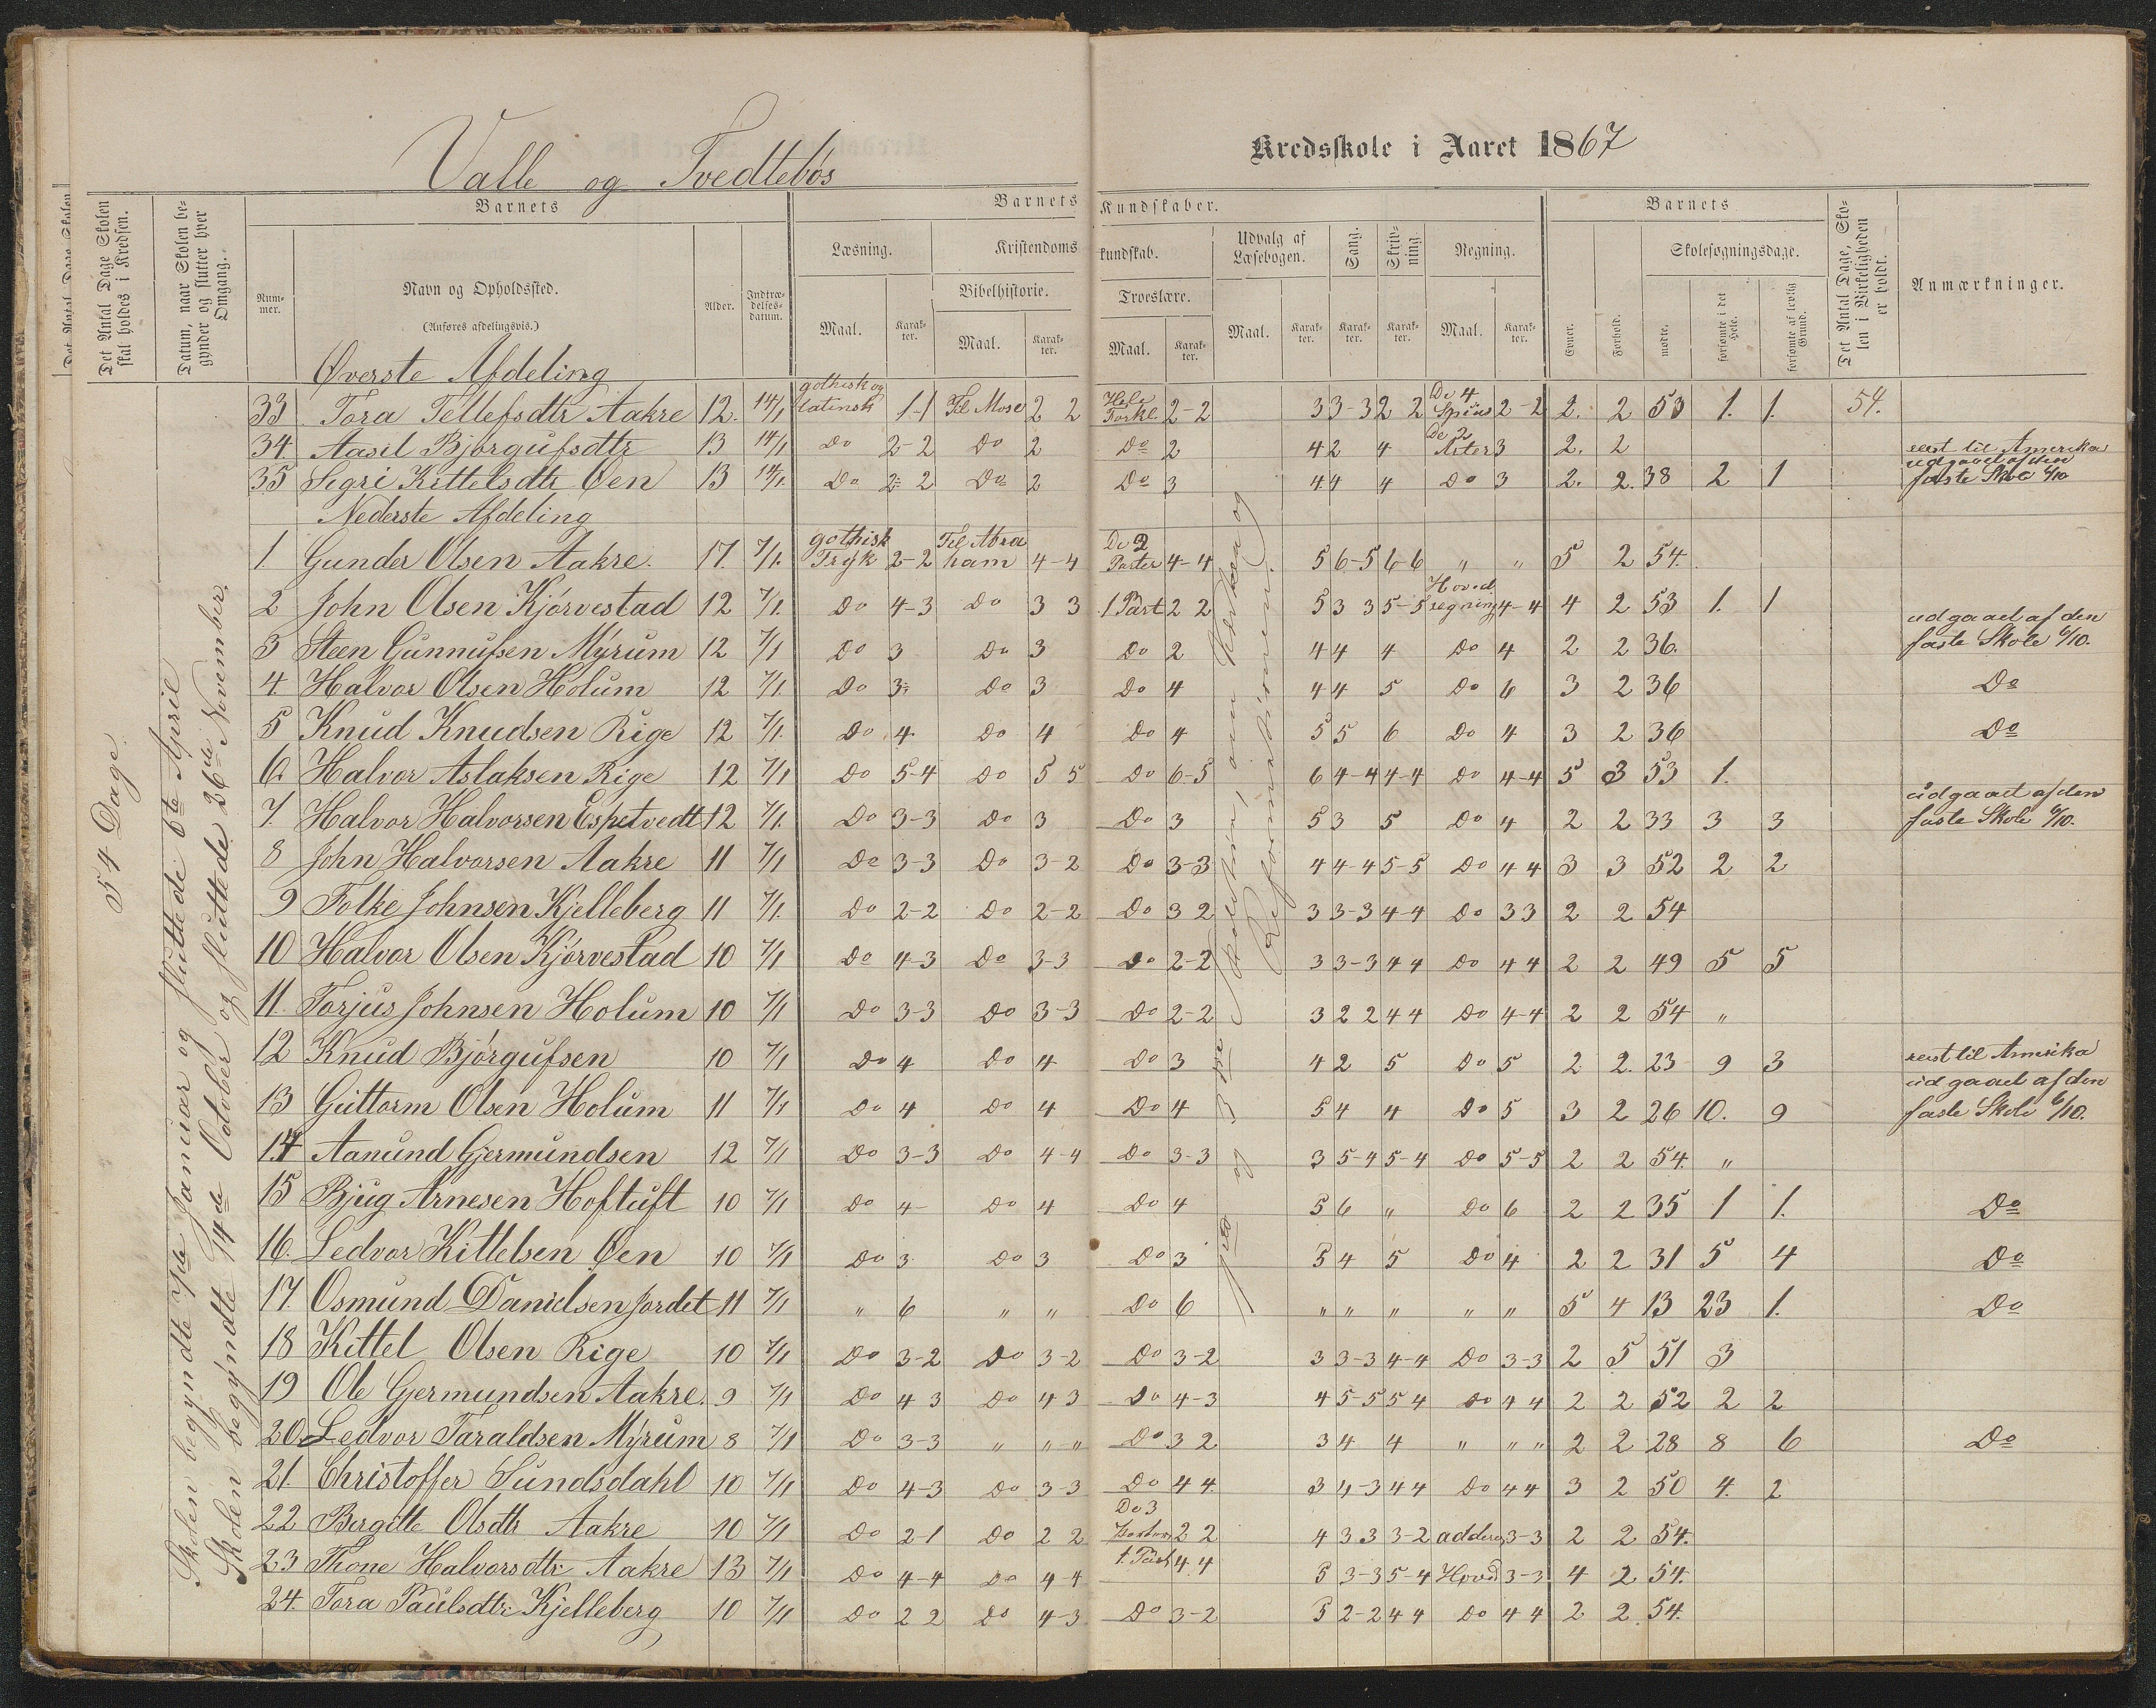 Valle og Tvedtebös
Kredsskole i Aaret 1867
Det Antal Dage Skolen skal holdes i Kredsen.
Datum, naar Skolen begynder og slutter hver Omgang.
Barnets
Nummer.
Navn og Opholdssted.
(Anføres afdelingsvis.)
Alder.
Indtrædelsesdatum.
Barnets Kundskaber.
Læsning.
Maal.
Karakter.
Kristendomskundskab.
Bibelhistorie.
Maal.
Karakter.
Troeslære.
Maal.
Karakter.
Udvalg af Læsebogen.
Maal.
Karakter.
Sang.
Karakter.
Skrivning.
Karakter.
Regning.
Maal.
Karakter.
Barnets
Evner.
Forhold.
Skolesøgningsdage.
mødte.
forsømte i det Hele.
forsømte af lovlig Grund.
Det Antal Dage, Skolen i Virkeligheden er holdt.
Anmærkninger.
54 Dage.
Skolen begyndte 7de Januar og sluttede 6te April
Skolen begyndte 14de October og sluttede 26de November.
Øverste Afdeling
33 Tora Tellefsdtr Aakre 12. 14/1 gothisk og latinsk 1-1 Til Mose 2 2 Hele Forkl. 2-2 3 3-3 2 2 De 4 Spies 2-2 2. 2 53 1. 1. 54.
34. Aasil Bjørgufsdtr 13 14/1 Do 2-2 Do 2 Do 2 4 2 4 De 2 Arter 3 2. 2 reist til Amerika
35 Segri Kittelsdtr Øen 13 14/1. Do 2-2 Do 2 Do 3 4 4 4 Do 3 2. 2. 38 2 1 udgaaet af den faste Skole 6/10
Nederste Afdeling
1. Gunder Olsen Aakre. 17. 7/1. gothisk Tryk 2-2 Til Abraham 4-4 De 2 Parter 4-4 5 6-5 6-6 " " 5 2 54.
2 John Olsen Kjørvestad 12 7/1. Do 4-3 Do 3 3 1 Part 2 2 5 3 3 5-5 Hovedregning 4-4 4 2 53 1. 1
3 Steen Gunnufsen Myrum 12 7/1 Do 3 Do 3 Do 2 4 4 4 Do 4 2 2 36. udgaaet af den faste Skole 6/10.
4. Halvor Olsen Holum 12 7/1. Do 3 Do 3 Do 4 4 4 5 Do 6 3 2 36 Do
5 Knud Knudsen Rige 12 7/1. Do 4 Do 4 Do 4 5 5 6 Do 4 3 2 36 Do
6. Halvor Aslaksen Rige 12 7/1 Do 5-4 Do 5 5 Do 6-5 6 4-4 4-4 Do 4-4 5 3 53 1.
7. Halvor Halvorsen Espetvedt 12 7/1. Do 3-3 Do 3 Do 3 5 3 5 Do 4 2 2 33 3 3 udgaaet af den faste Skole 6/10.
8 John Halvorsen Aakre 11 7/1 Do 3-3 Do 3-2 Do 3-3 4 4-4 5-5 Do 4 4 3 3 52 2 2
9 Folke Johnsen Kjelleberg 11 7/1. Do 2-2 Do 2-2 Do 3 2 3 3-3 4-4 Do 3 3 2 2 54
10 Halvor Olsen Kjørvestad 10 7/1 Do 4-3 Do 3-3 Do 2-2 3 3-3 4 4 Do 4 4 2 2 49 5 5
11. Torjus Johnsen Holum 10 7/1 Do 3-3 Do 3-3 Do 2-2 3 2 2 4 4 Do 4-4 2 2 54 "
12 Knud Bjørgufsen 10 7/1 Do 4 Do 4 Do 3 4 2 5 Do 5 2 2. 23 9 3 reist til Amerika
13 Guttorm Olsen Holum 11 7/1 Do 4 Do 4 Do 4 5 4 4 Do 5 3 2 26 10. 9 udgaaet af den faste Skole 6/10.
14 Aanund Gjermundsen 12 7/1 Do 3-3 Do 4-4 Do 3-3 3 5-4 5-4 Do 5-5 2 2 54. "
15 Bjug Arnesen Hoftuft 10 7/1 Do 4- Do 4 Do 4 5 6 " Do 6 2 2 35 1 1. Do
16. Ledvor Kittelsen Øen 10 7/1 Do 3 Do 3 Do 3 5 4 5 Do 4 2 2 31 5 4 Do
17. Osmund Danielsen Jordet 11 7/1 " 6 " " Do 6 " " " " " 5 4 13 23 1. Do
18 Kittel Olsen Rige 10 7/1 Do 3-2 Do 3-2 Do 3-2 3 3-3 4-4 Do 3-3 2 5 51 3
19 Ole Gjermundsen Aakre. 9 7/1 Do 4 3 Do 4 3 Do 4-3 4 5-5 5 4 Do 4 4 2 2 52 2 2
20. Ledvor Taraldsen Myrum 8 7/1 Do 3-3 " " " Do 3 2 3 4 4 " " " 2 2 28 8 6 Do
21. Christoffer Sundsdahl 10 7/1 Do 4-3 Do 3-3 Do 4 4 3 4-3 4 4 Do 4 4 3 2 50 4. 2
22 Bergitte Olsdtr Aakre 10 7/1 Do 2-1 Do 2 2 De 3 Parter 2 2 4 3 3 3-2 addere 3-3 2 2 54.
23 Thone Halvorsdtr Aakre 13 7/1 Do 4-4 Do 4 4 1. Part 4 4 5 3-3 5-4 Hoved 3-3 4 2 54.
24. Tora Paulsdtr Kjelleberg 10 7/1 Do 2 2 Do 4-3 Do 3-2 5 2-2 4 4 Do 4 4 2 2. 54.
og 3die
Reformationen.